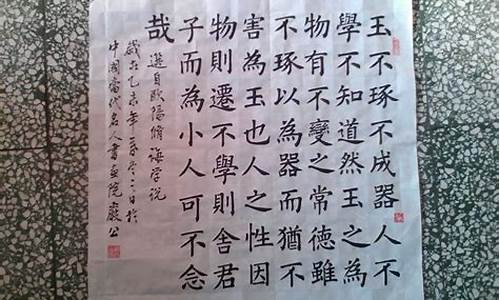 玉不琢不成器人不
學不知道然玉之為
物有不變之常德雖
不琢以為器而猶不
害為玉也人之性因
物則遷不學則舍君
子而為小人可不念
哉
選自歐陽脩誨学説
歲在乙未年日於
中國當代名人書画院嚴公